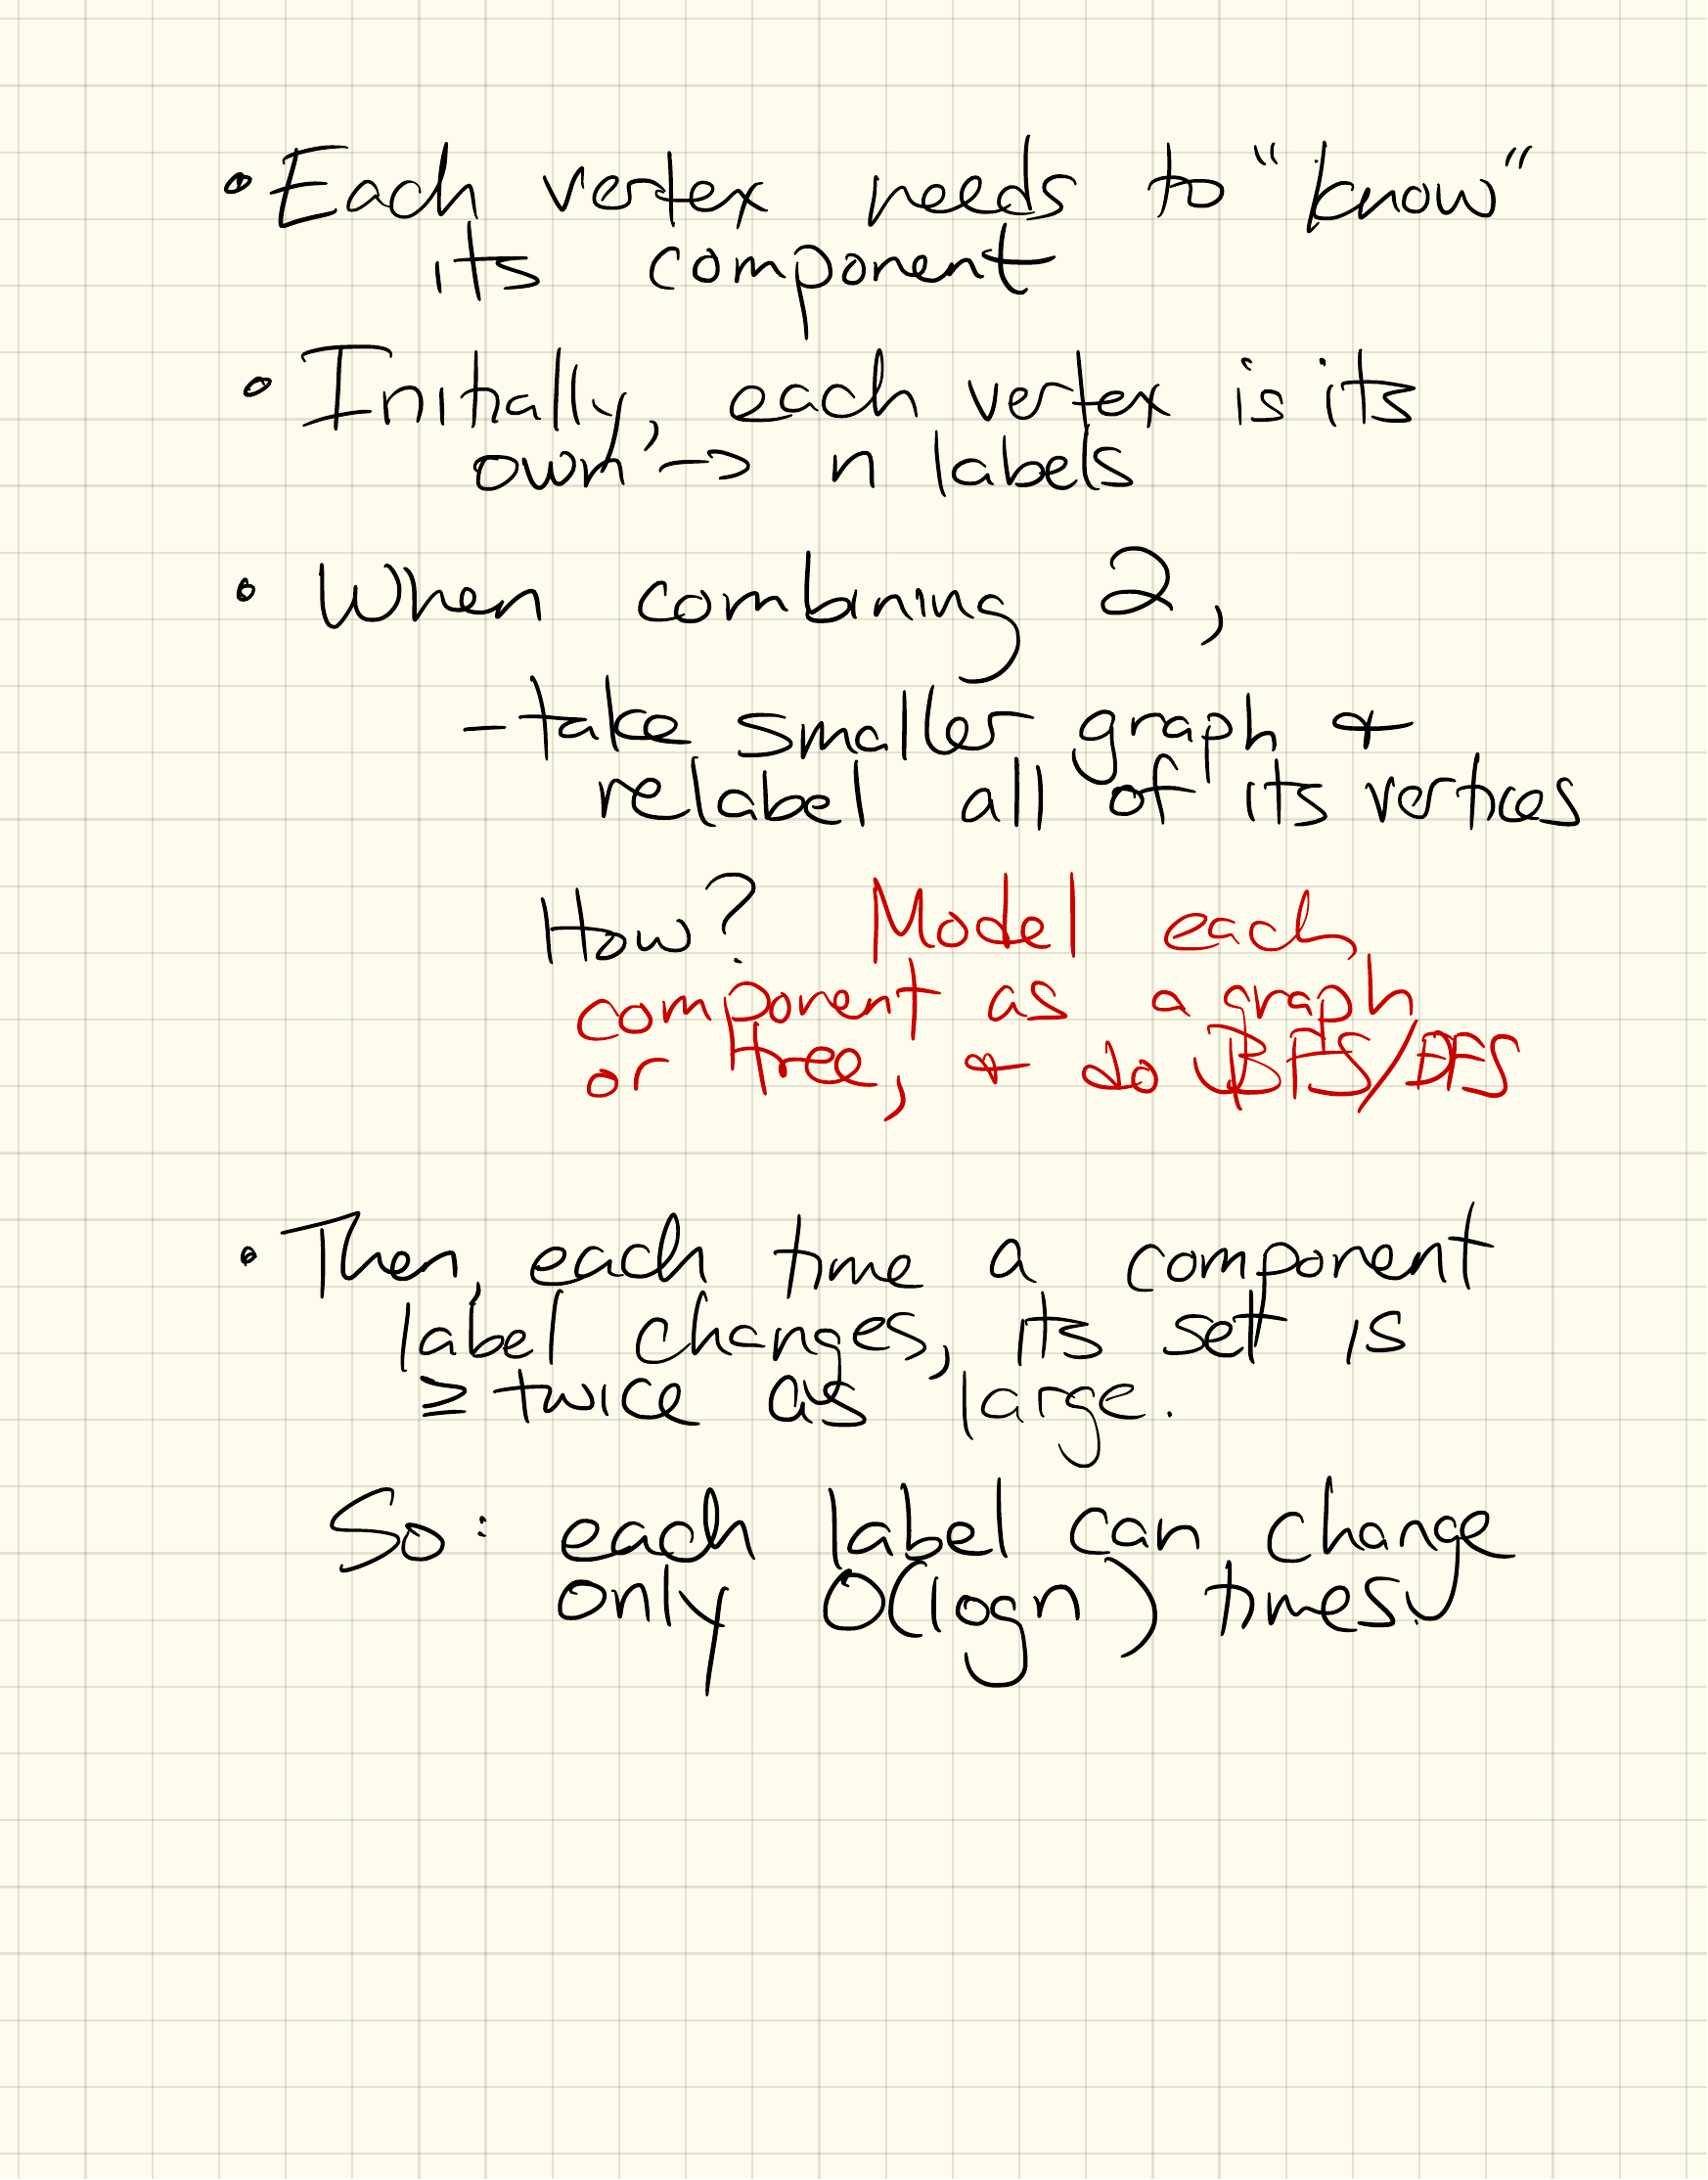 • Each vertex needs to "know"
its component
• Initially, each vertex is its
own -> n labels
• When combining 2,
- take smaller graph &
relabel all of its vertices
How? Model each
component as a graph
or tree, & do BFS/DFS
• Then, each time a component
label changes, its set is
≥ twice as large.
So: each label can change
only O(log n) times.